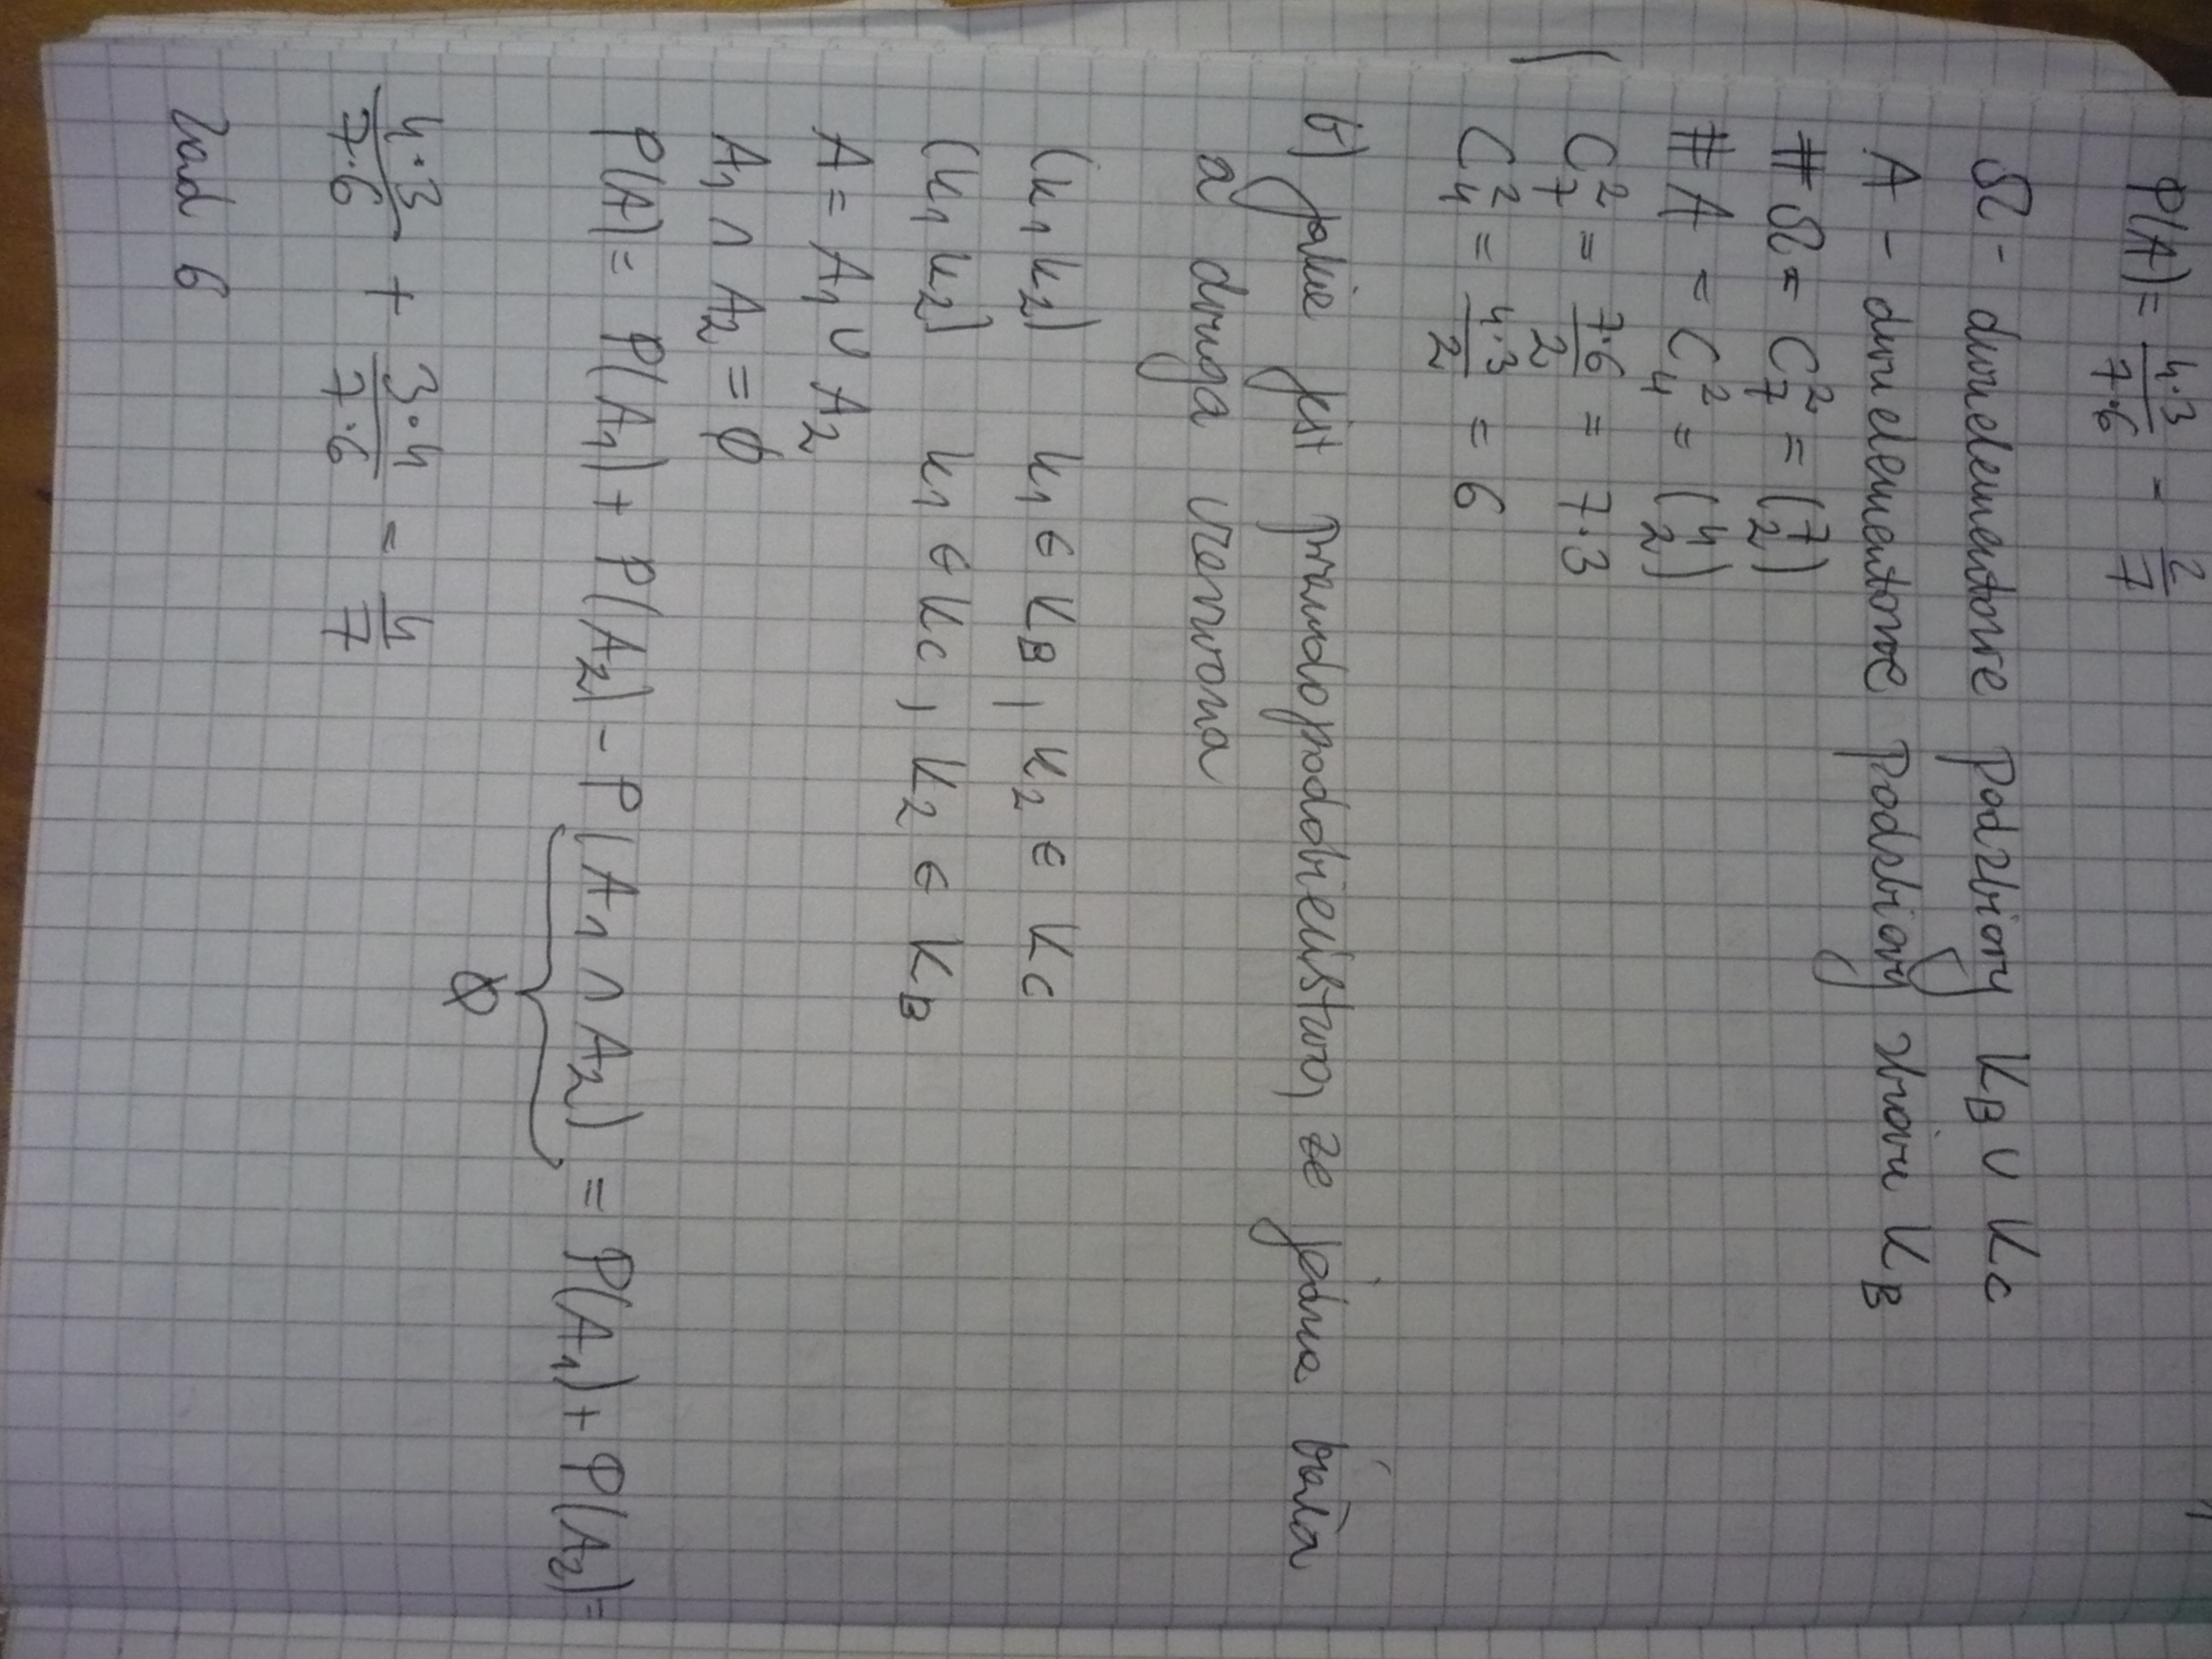 P(A) = 4·3/7·6 - 2/7
Ω - dwuelementowe podzbiory K_B ∪ K_C
A - dwuelementowe podzbiory zbioru K_B
# Ω = C_7^2 = (7 2)
# A = C_4^2 = (4 2)
C_7^2 = 7·6/2 = 7·3
C_4^2 = 4·3/2 = 6
b) Jakie jest prawdopodobieństwo, że jedna biała
a druga czerwona
(k_1 k_2) k_1 ∈ K_B, k_2 ∈ K_C
(k_1 k_2) k_1 ∈ K_C, k_2 ∈ K_B
A = A_1 ∪ A_2
A_1 ∩ A_2 = ∅
P(A) = P(A_1) + P(A_2) - P(A_1 ∩ A_2) = P(A_1) + P(A_2) =
∅
4·3/7·6 + 3·4/7·6 = 4/7
Zad 6